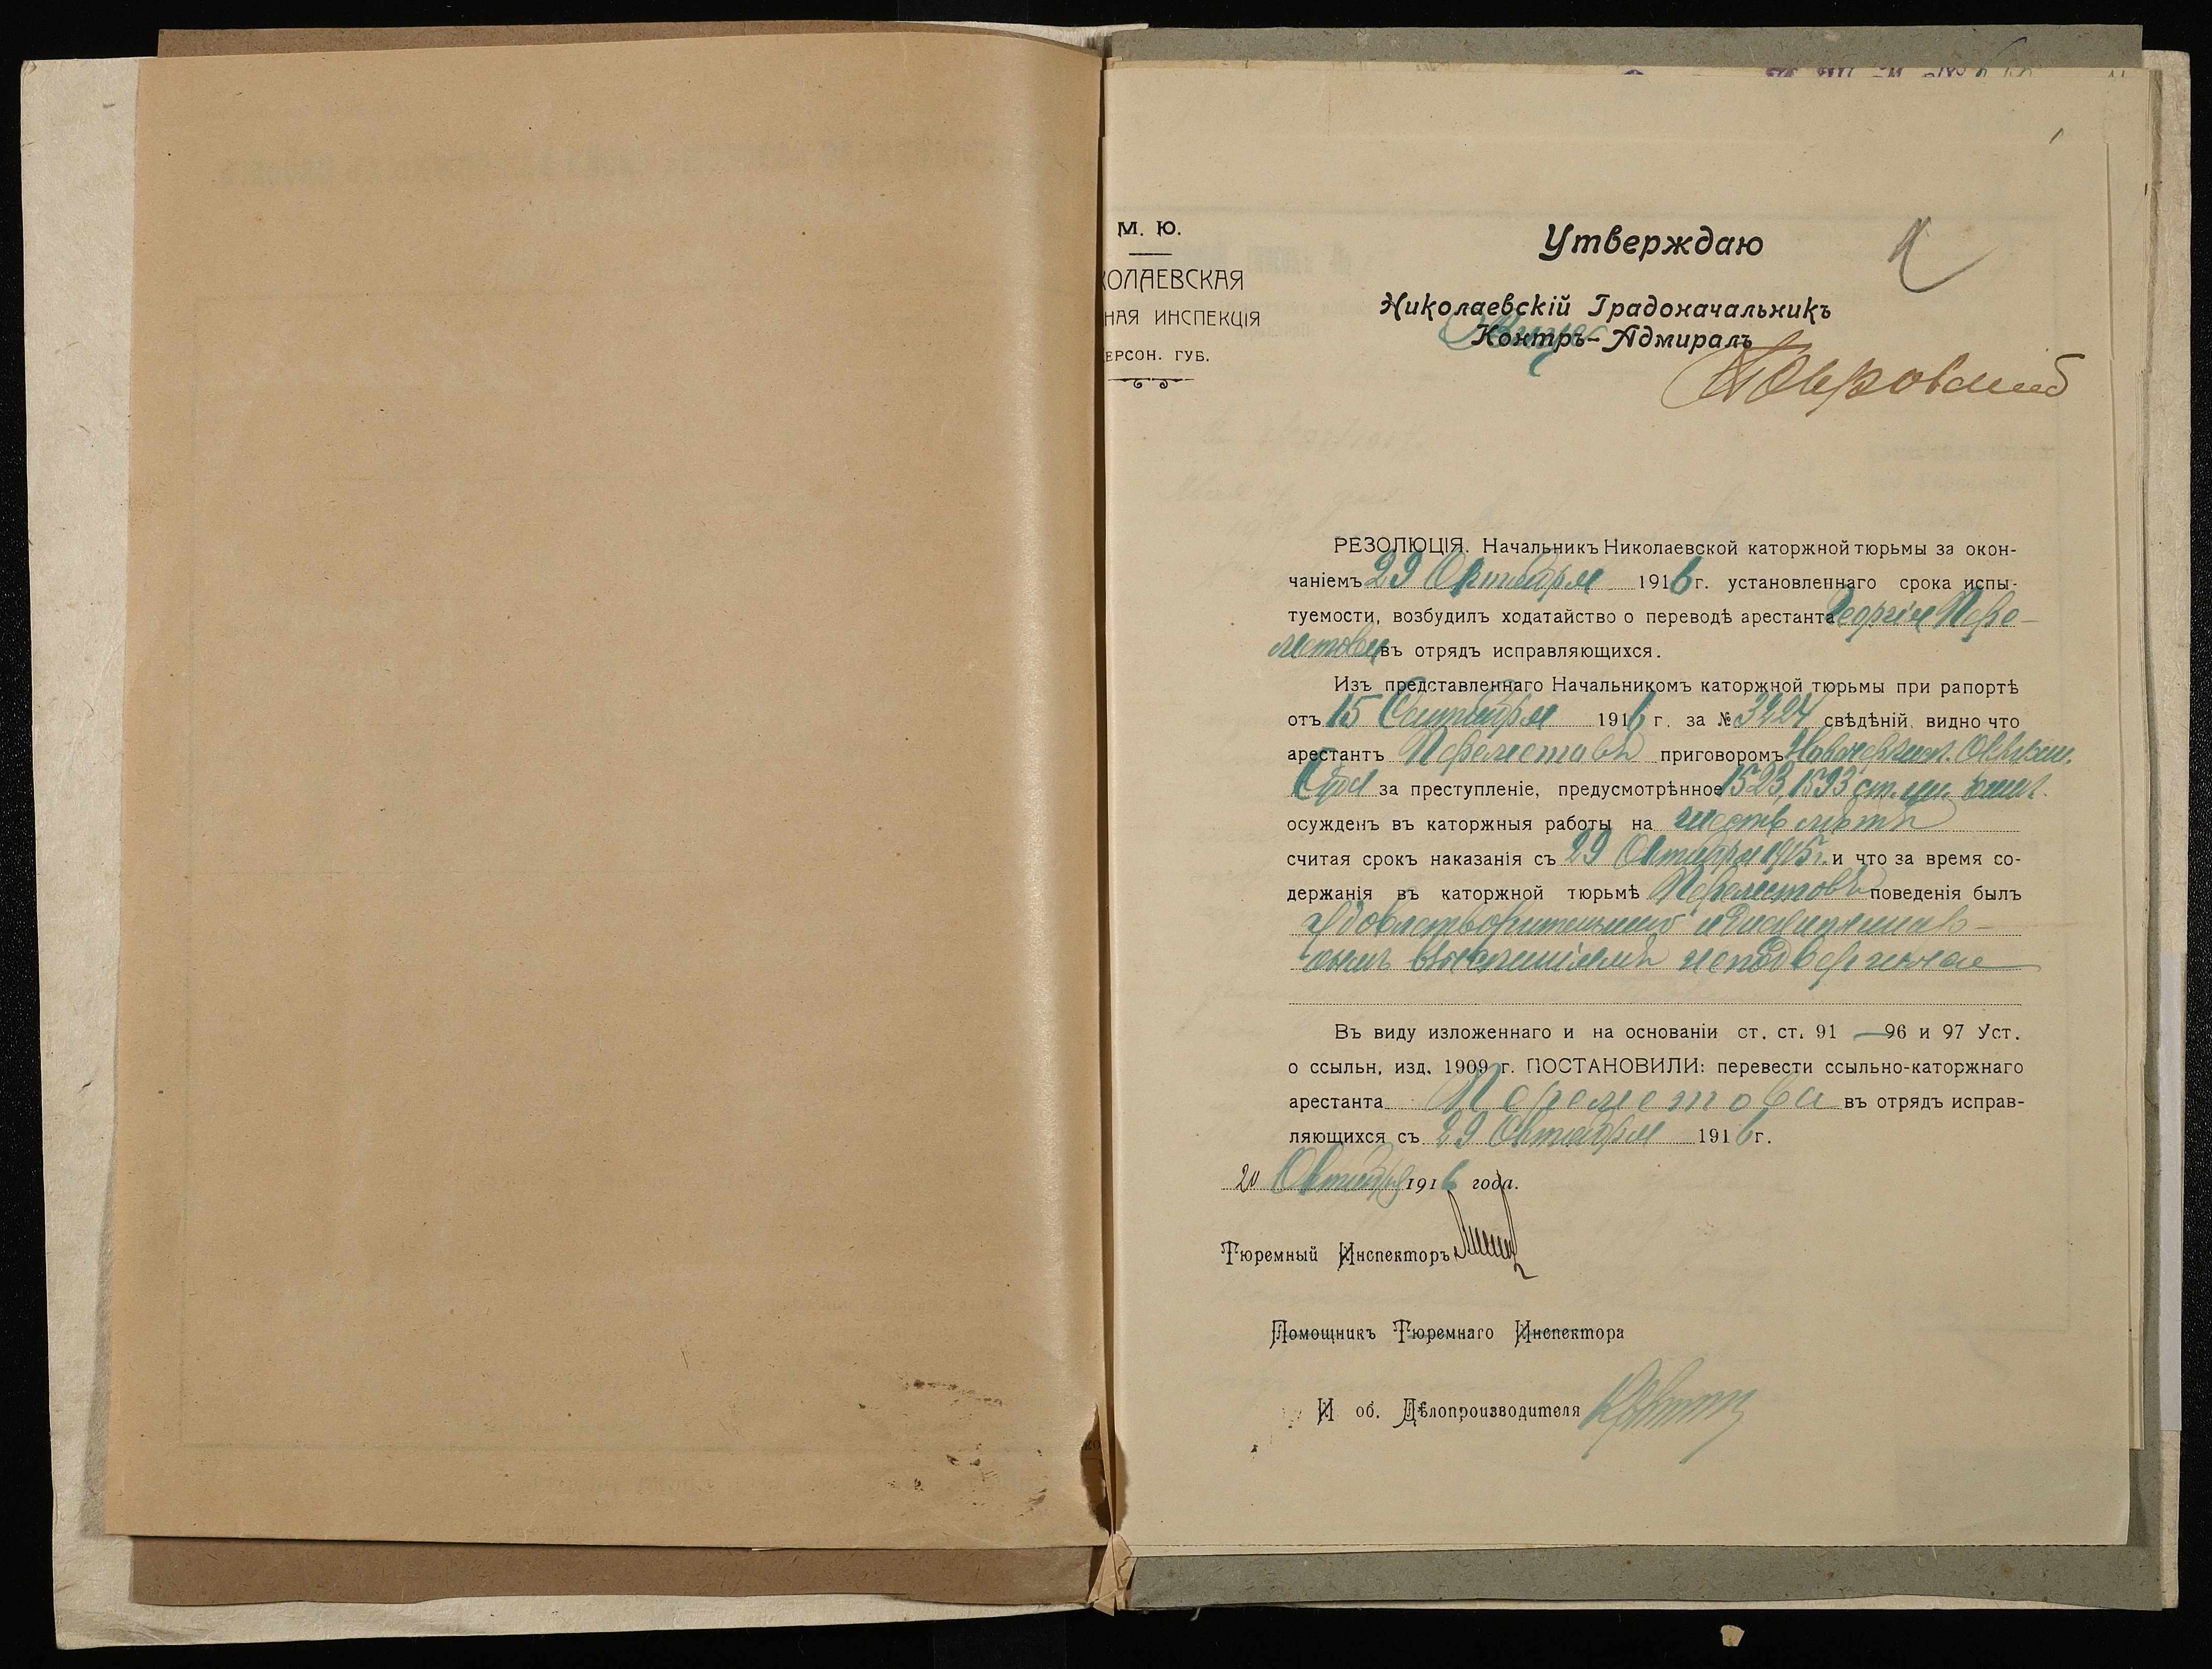 М. Ю.
КОЛАЕВСКАЯ
НАЯ ИНСПЕКЦІЯ
ЕРСОН. ГУБ.
Утверждаю
Николаевскій Градоначальникъ
Контръ-Адмиралъ
РЕЗОЛЮЦІЯ. Начальникъ Николаевской каторжной тюрьмы за окон-
чаніемъ 29 Октября 1916 г. установленнаго срока испы-
туемости, возбудилъ ходатайство о переводѣ арестанта Георгія Пере-
метова въ отрядъ исправляющихся.
Изъ представленнаго Начальникомъ каторжной тюрьмы при рапортѣ
отъ 15 Сентября 1916 г. за № 3224 свѣдѣній видно что
арестантъ Переметовъ приговоромъ Новочеркас. Окружн.
Суда за преступленіе, предусмотрѣнное 1523, 1593 ст. ул. о нак.
осужденъ въ каторжныя работы на шесть лѣтъ
считая срокъ наказанія съ 29 Октября 1915 г. и что за время со-
держанія въ каторжной тюрьмѣ Переметовъ поведенія былъ
удовлетворительнаго и дисциплинар-
нымъ взысканіямъ не подвергался
Въ виду изложеннаго и на основаніи ст. ст. 91 — 96 и 97 Уст.
о ссыльн. изд. 1909 г. ПОСТАНОВИЛИ: перевести ссыльно-каторжнаго
арестанта Переметова въ отрядъ исправ-
ляющихся съ 29 Октября 1916 г.
20 Октября 1916 года.
Тюремный Инспекторъ
Помощникъ Тюремнаго Инспектора
И об. Дѣлопроизводителя